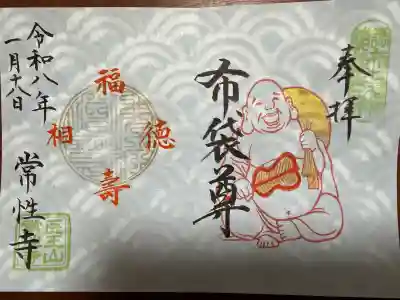 奉拝
布袋尊
福
徳
寿
相
令和八年
一月十八日
常性寺